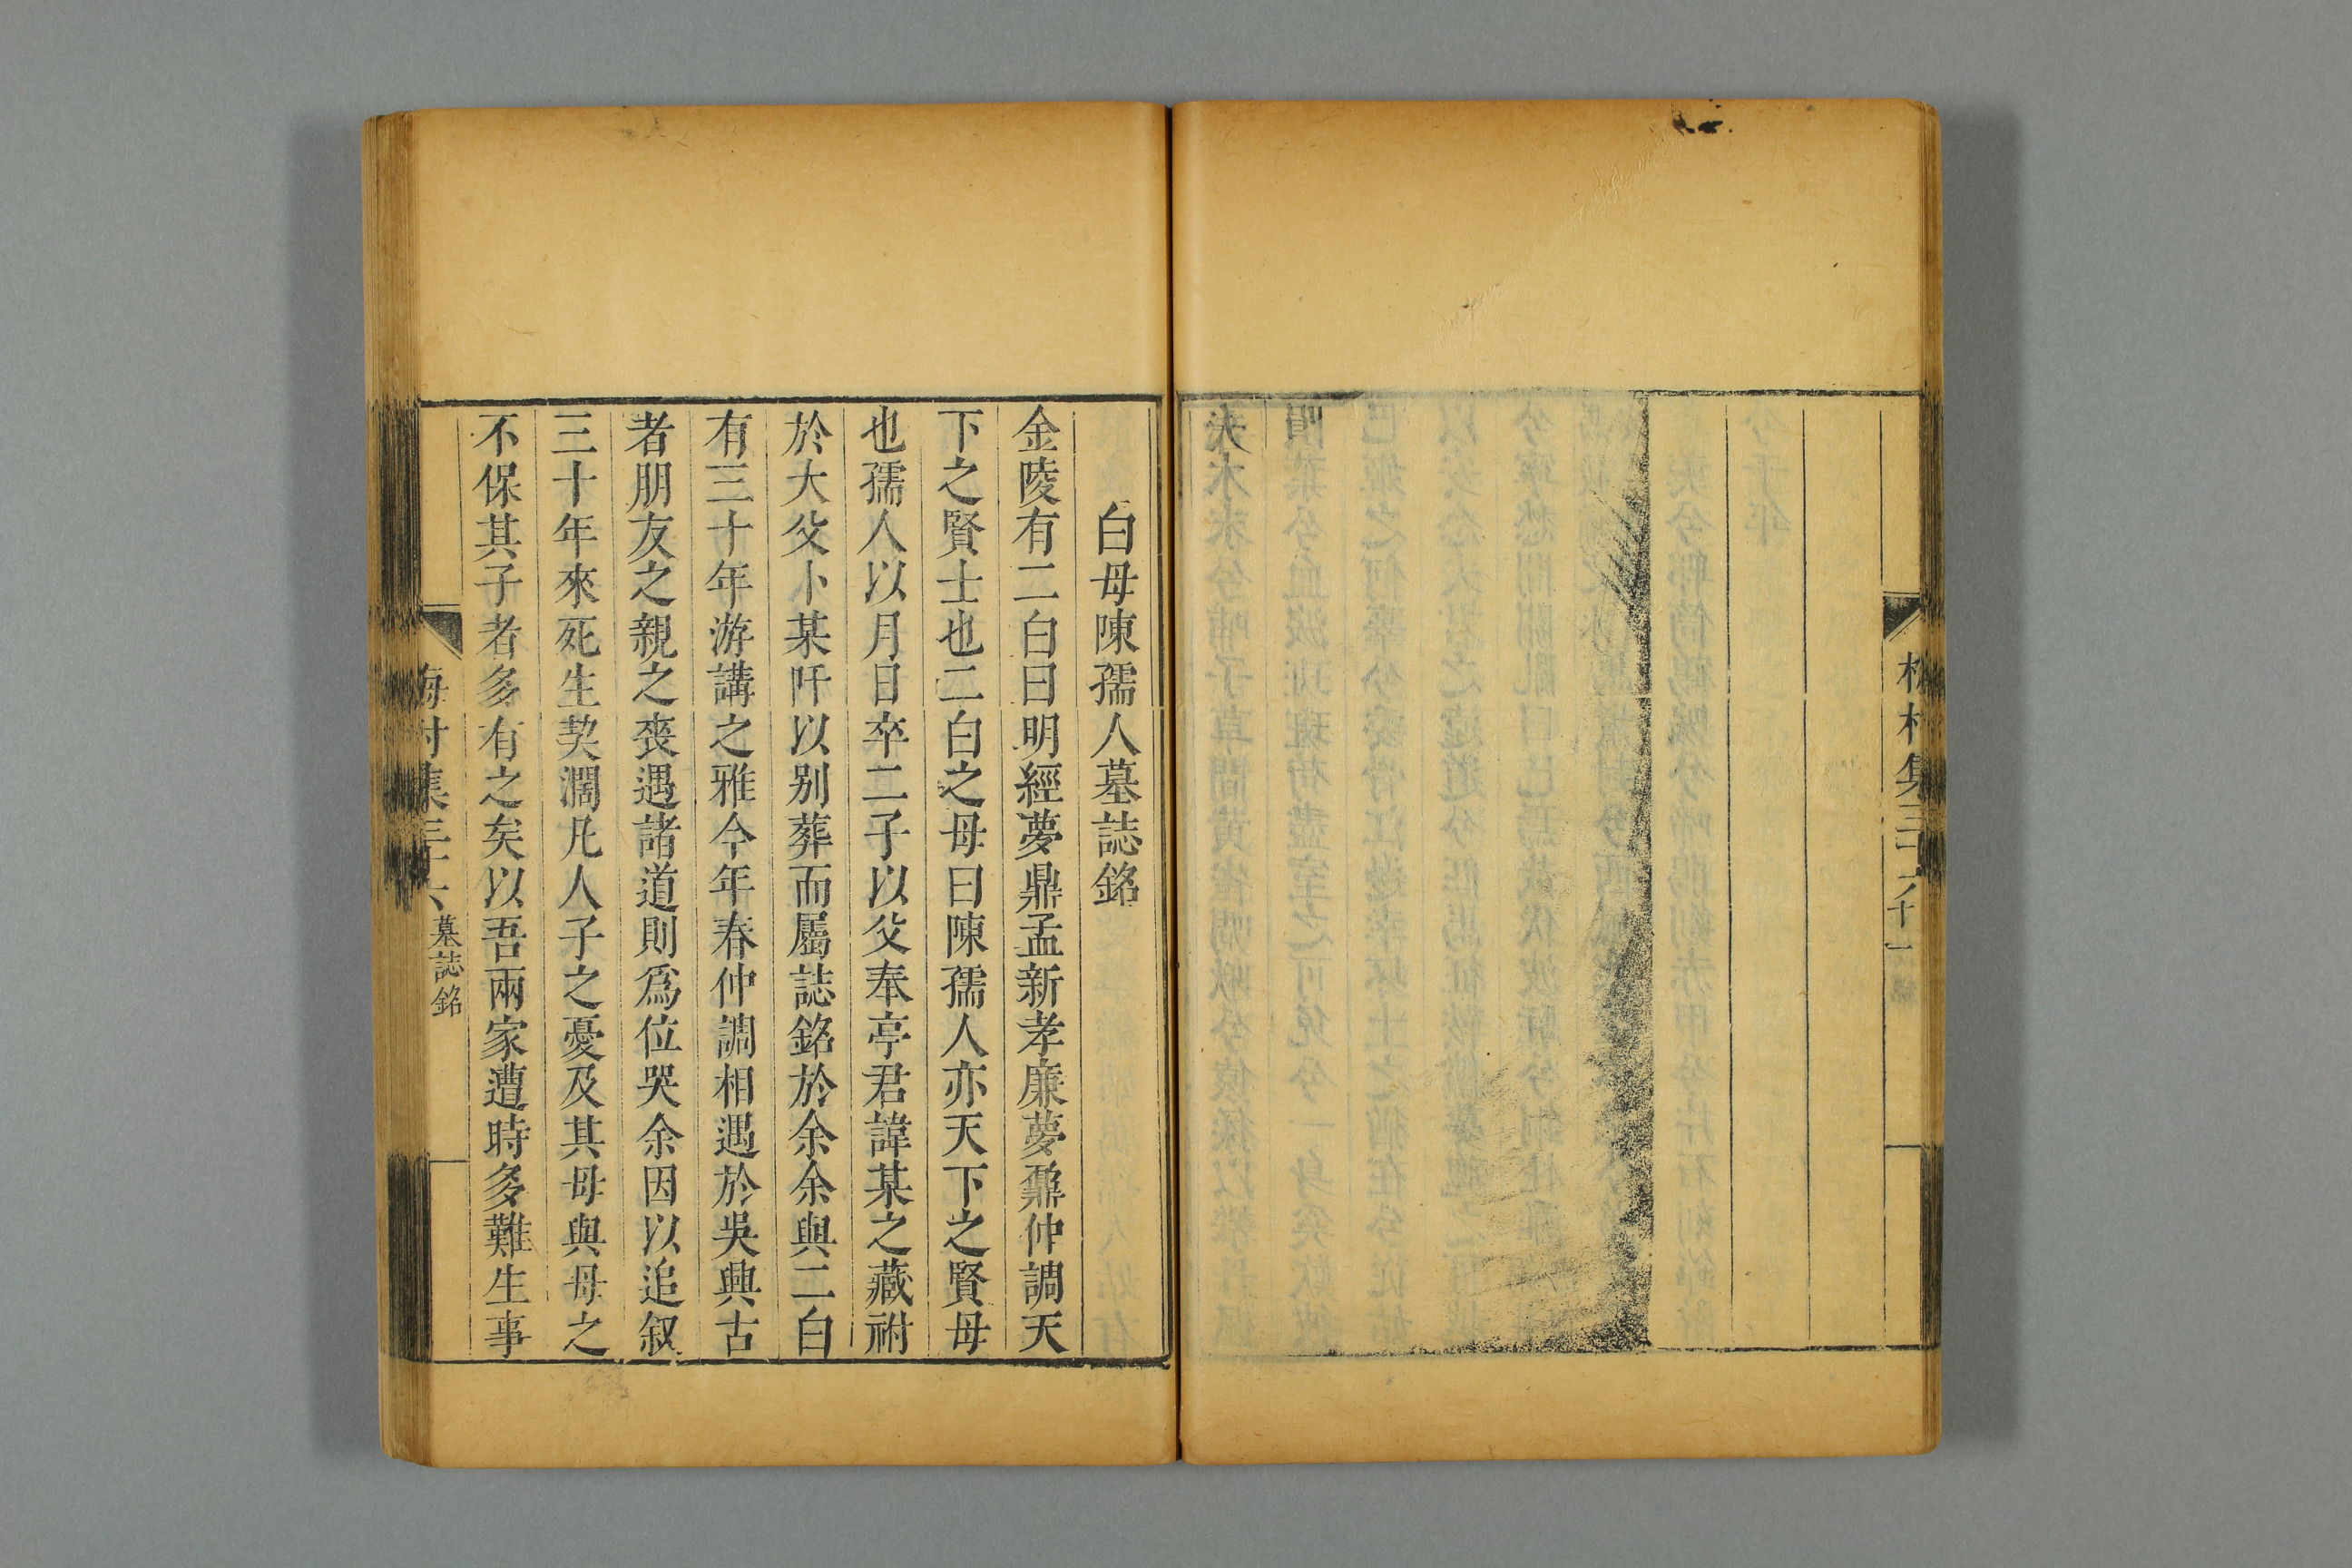 白母陳孺人墓誌銘
金陵有二白曰明經夢鼎孟新孝廉夢鼐仲調天
下之賢士也二白之母曰陳孺人亦天下之賢母
也孺人以月日卒二子以父奉亭君諱某之藏祔
於大父卜某阡以别葬而屬誌銘於余余與二白
有三十年游講之雅今年春仲調相遇於吳興古
者朋友之親之喪遇諸道則爲位哭余因以追叙
三十年來死生契濶凡人子之憂及其母與母之
不保其子者多有之矣以吾兩家遭時多難生事
梅村集三十六 墓誌銘
村集三十六 十一